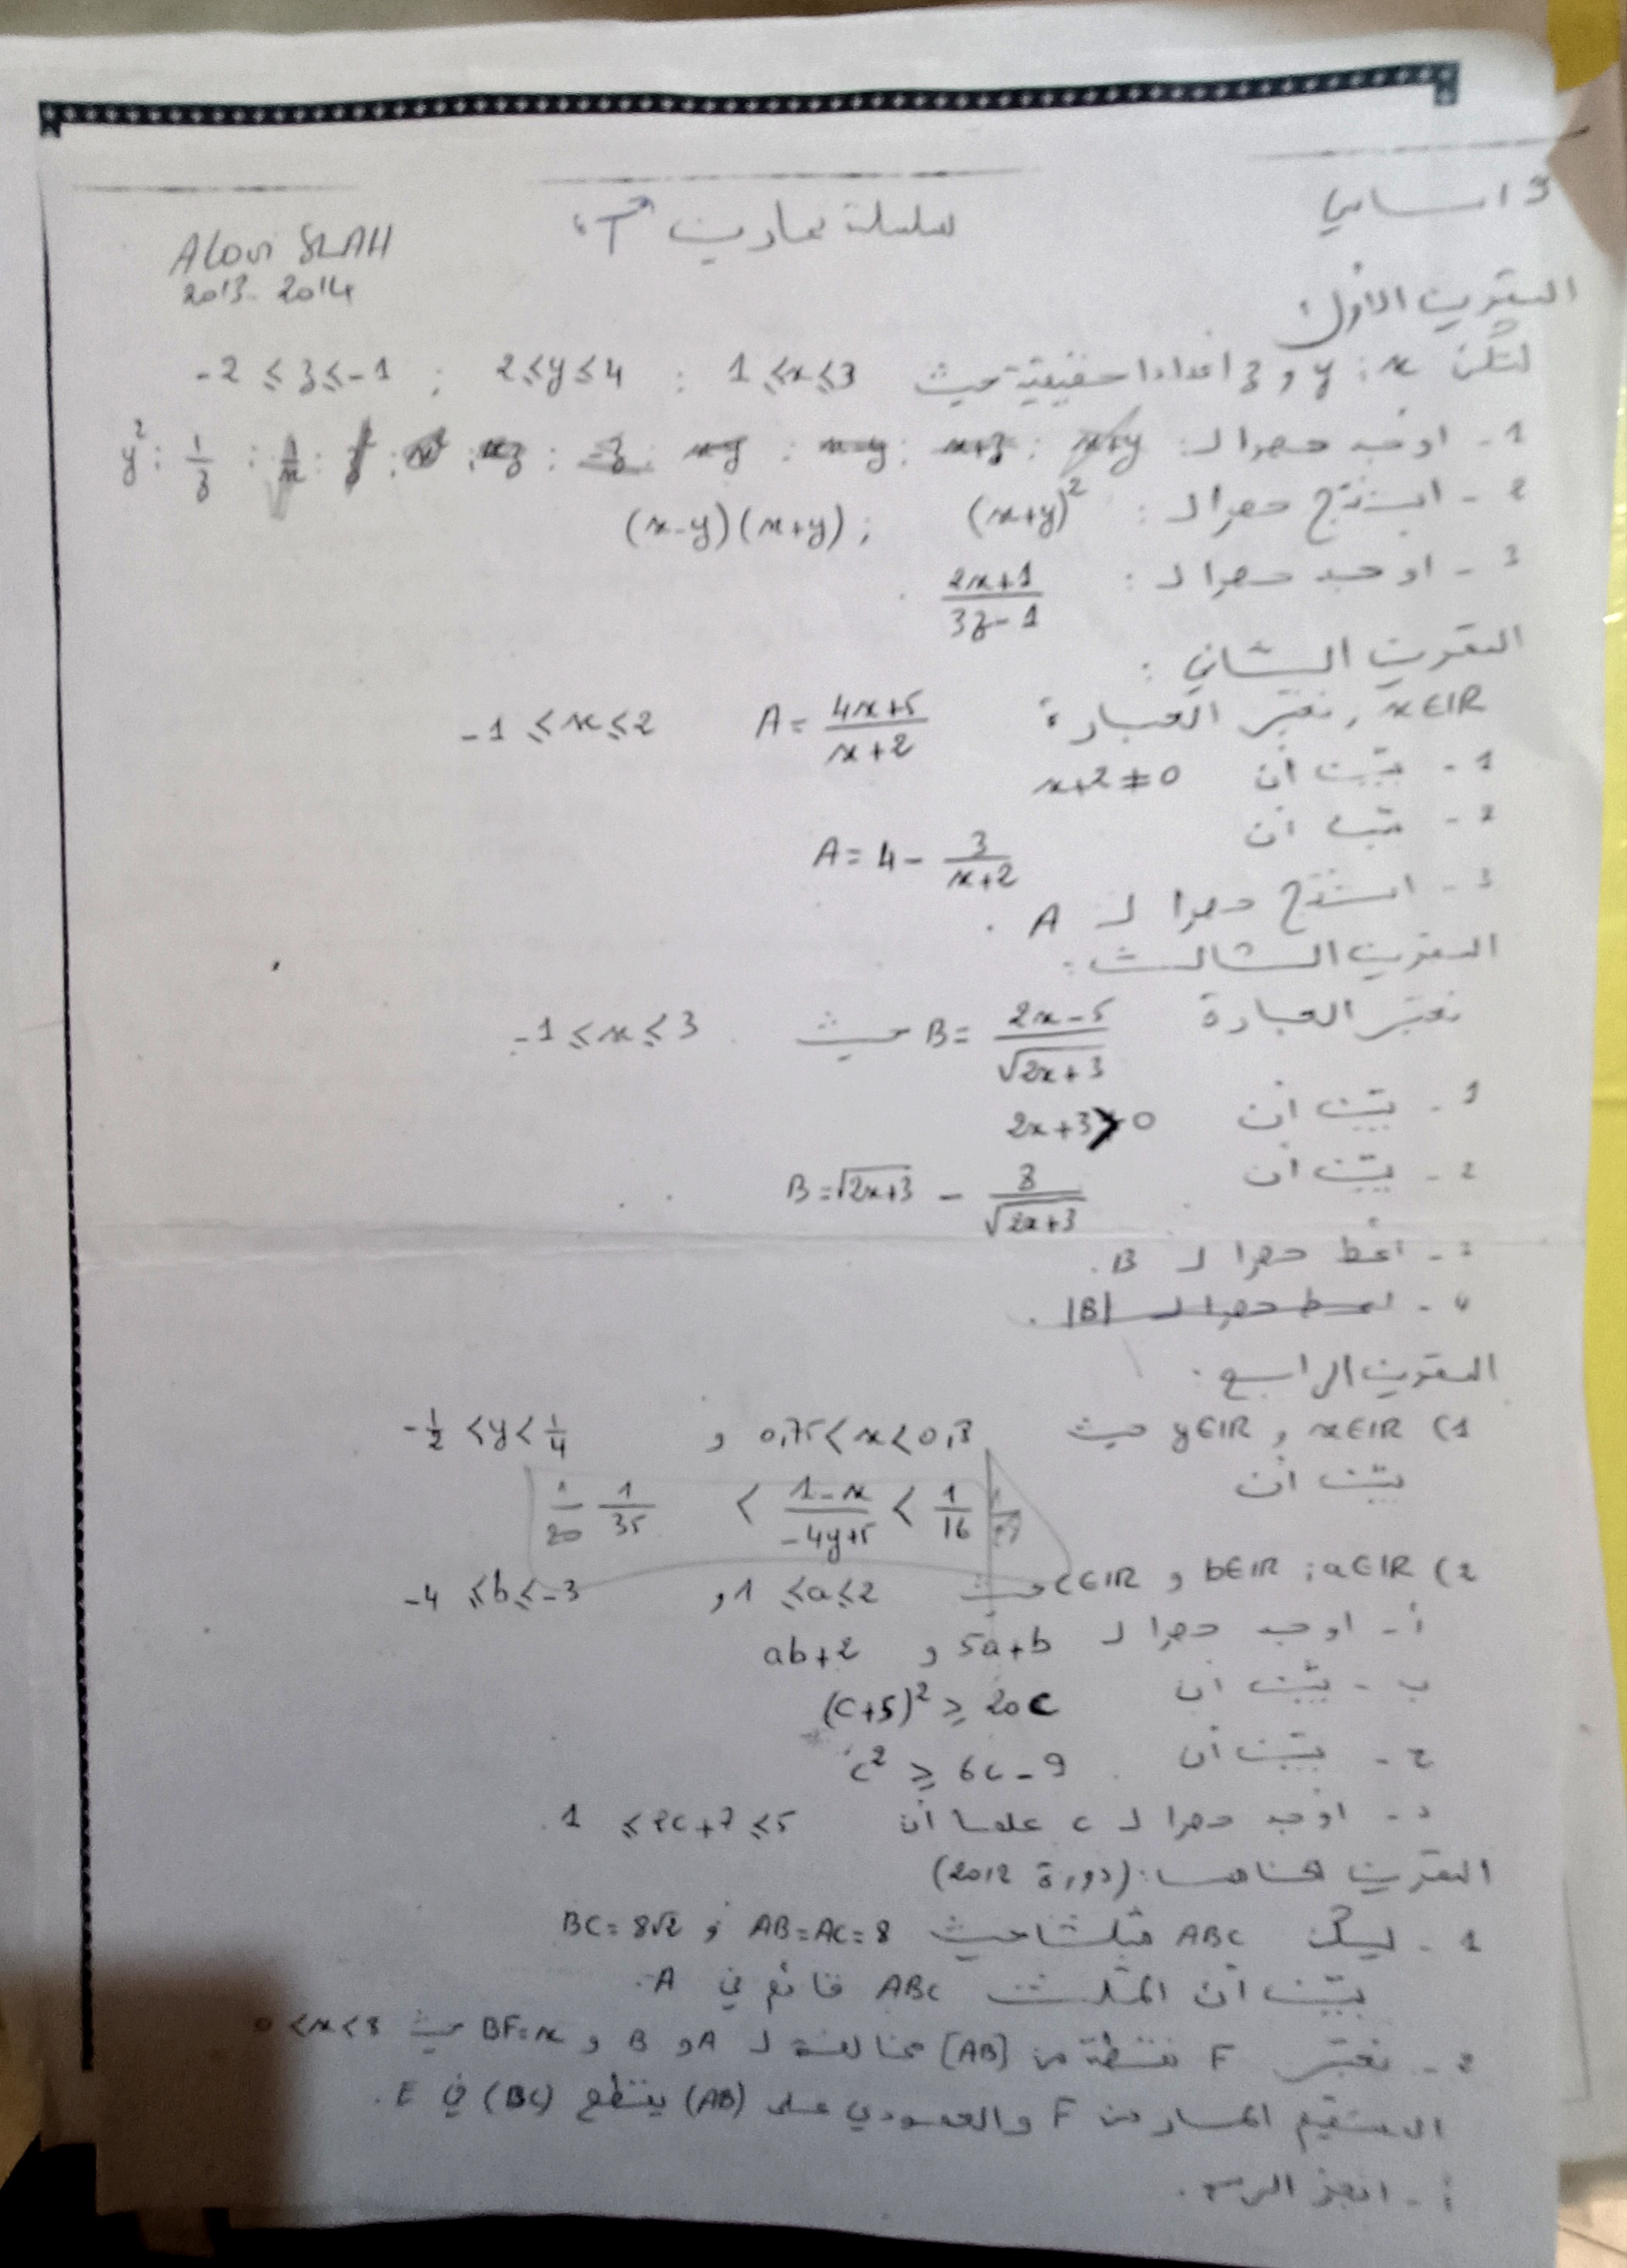 9 اساسي
سلسلة تمارين "T"
ALoui SLAH
2013-2014
التمرين الأول:
لتكن x ; y و z اعدادا حقيقية حيث 1 ≤ x ≤ 3 ; 2 ≤ y ≤ 4 ; -2 ≤ z ≤ -1
1 - اوجد حصرا لـ: x+y ; x+z ; x-y ; xy ; -z ; xz ; x² ; 1/x ; 1/z ; y²
2 - استنتج حصرا لـ : (x+y)² ; (x-y)(x+y)
3 - اوجد حصرا لـ : (2x+1)/(3z-1)
التمرين الثاني :
x∈IR , نعتبر العبارة A = (4x+5)/(x+2) -1 ≤ x ≤ 2
1 - بيّن أن x+2 ≠ 0
2 - بيّن أن A = 4 - 3/(x+2)
3 - استنتج حصرا لـ A .
التمرين الثالث :
نعتبر العبارة B = (2x-5)/√(2x+3) حيث -1 ≤ x ≤ 3
1 - بيّن أن 2x+3 > 0
2 - بيّن أن B = √(2x+3) - 8/√(2x+3)
3 - اعط حصرا لـ B.
4 - اعط حصرا لـ |B| .
التمرين الرابع :
1) x∈IR و y∈IR حيث 0,75 < x < 0,8 و -1/2 < y < 1/4
بيّن أن
1/20 1/35 < (1-x)/(-4y+5) < 1/16
2) a∈IR ; b∈IR و c∈IR حيث 1 ≤ a ≤ 2 , -4 ≤ b ≤ -3
أ - اوجد حصرا لـ 5a+b و ab+2
ب - بيّن أن (c+5)² ≥ 20c
ج - بيّن أن c² ≥ 6c-9
د - اوجد حصرا لـ c علما أن 1 ≤ 2c+7 ≤ 5
التمرين الخامس : (دورة 2012)
1 - ليكن ABC مثلثا حيث AB=AC=8 و BC=8√2
بيّن أن المثلث ABC قائم في A.
2 - نعتبر F نقطة من [AB] مخالفة لـ A و B و BF=x حيث 0<x<8
المستقيم المار من F والعمودي على (AB) يقطع (BC) في E.
أ - انجز الرسم .